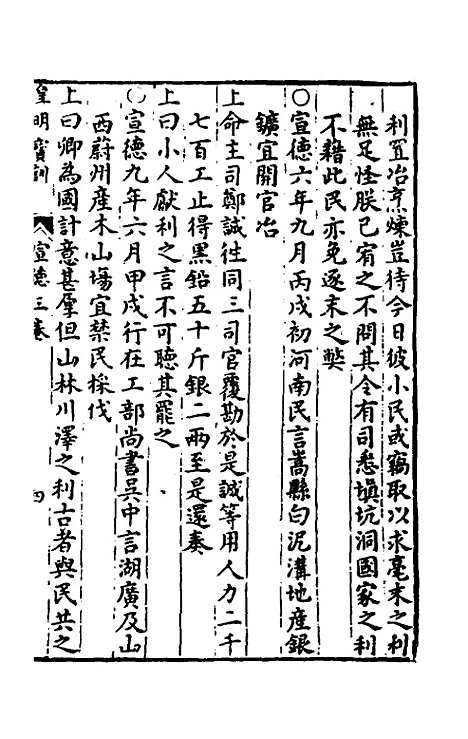 利置冶烹煉豈待今日彼小民或竊取以求毫末之利
無足怪朕已宥之不問其令有司悉塡坑洞國家之利
不藉此民亦免逐末之弊
○宣德六年九月丙戌初河南民言嵩縣白泥溝地產銀
鑛宜開官冶
上命主司鄭誠往同三司官覆勘於是誠等用人力二千
七百工止得黑鉛五十斤銀二兩至是還奏
上曰小人獻利之言不可聽其罷之
○宣德九年六月甲戌行在工部尚書吳中言湖廣及山
西蔚州產木山場宜禁民採伐
上曰卿為國計意甚厚但山林川澤之利古者與民共之
皇明寶訓 宣德三卷 四